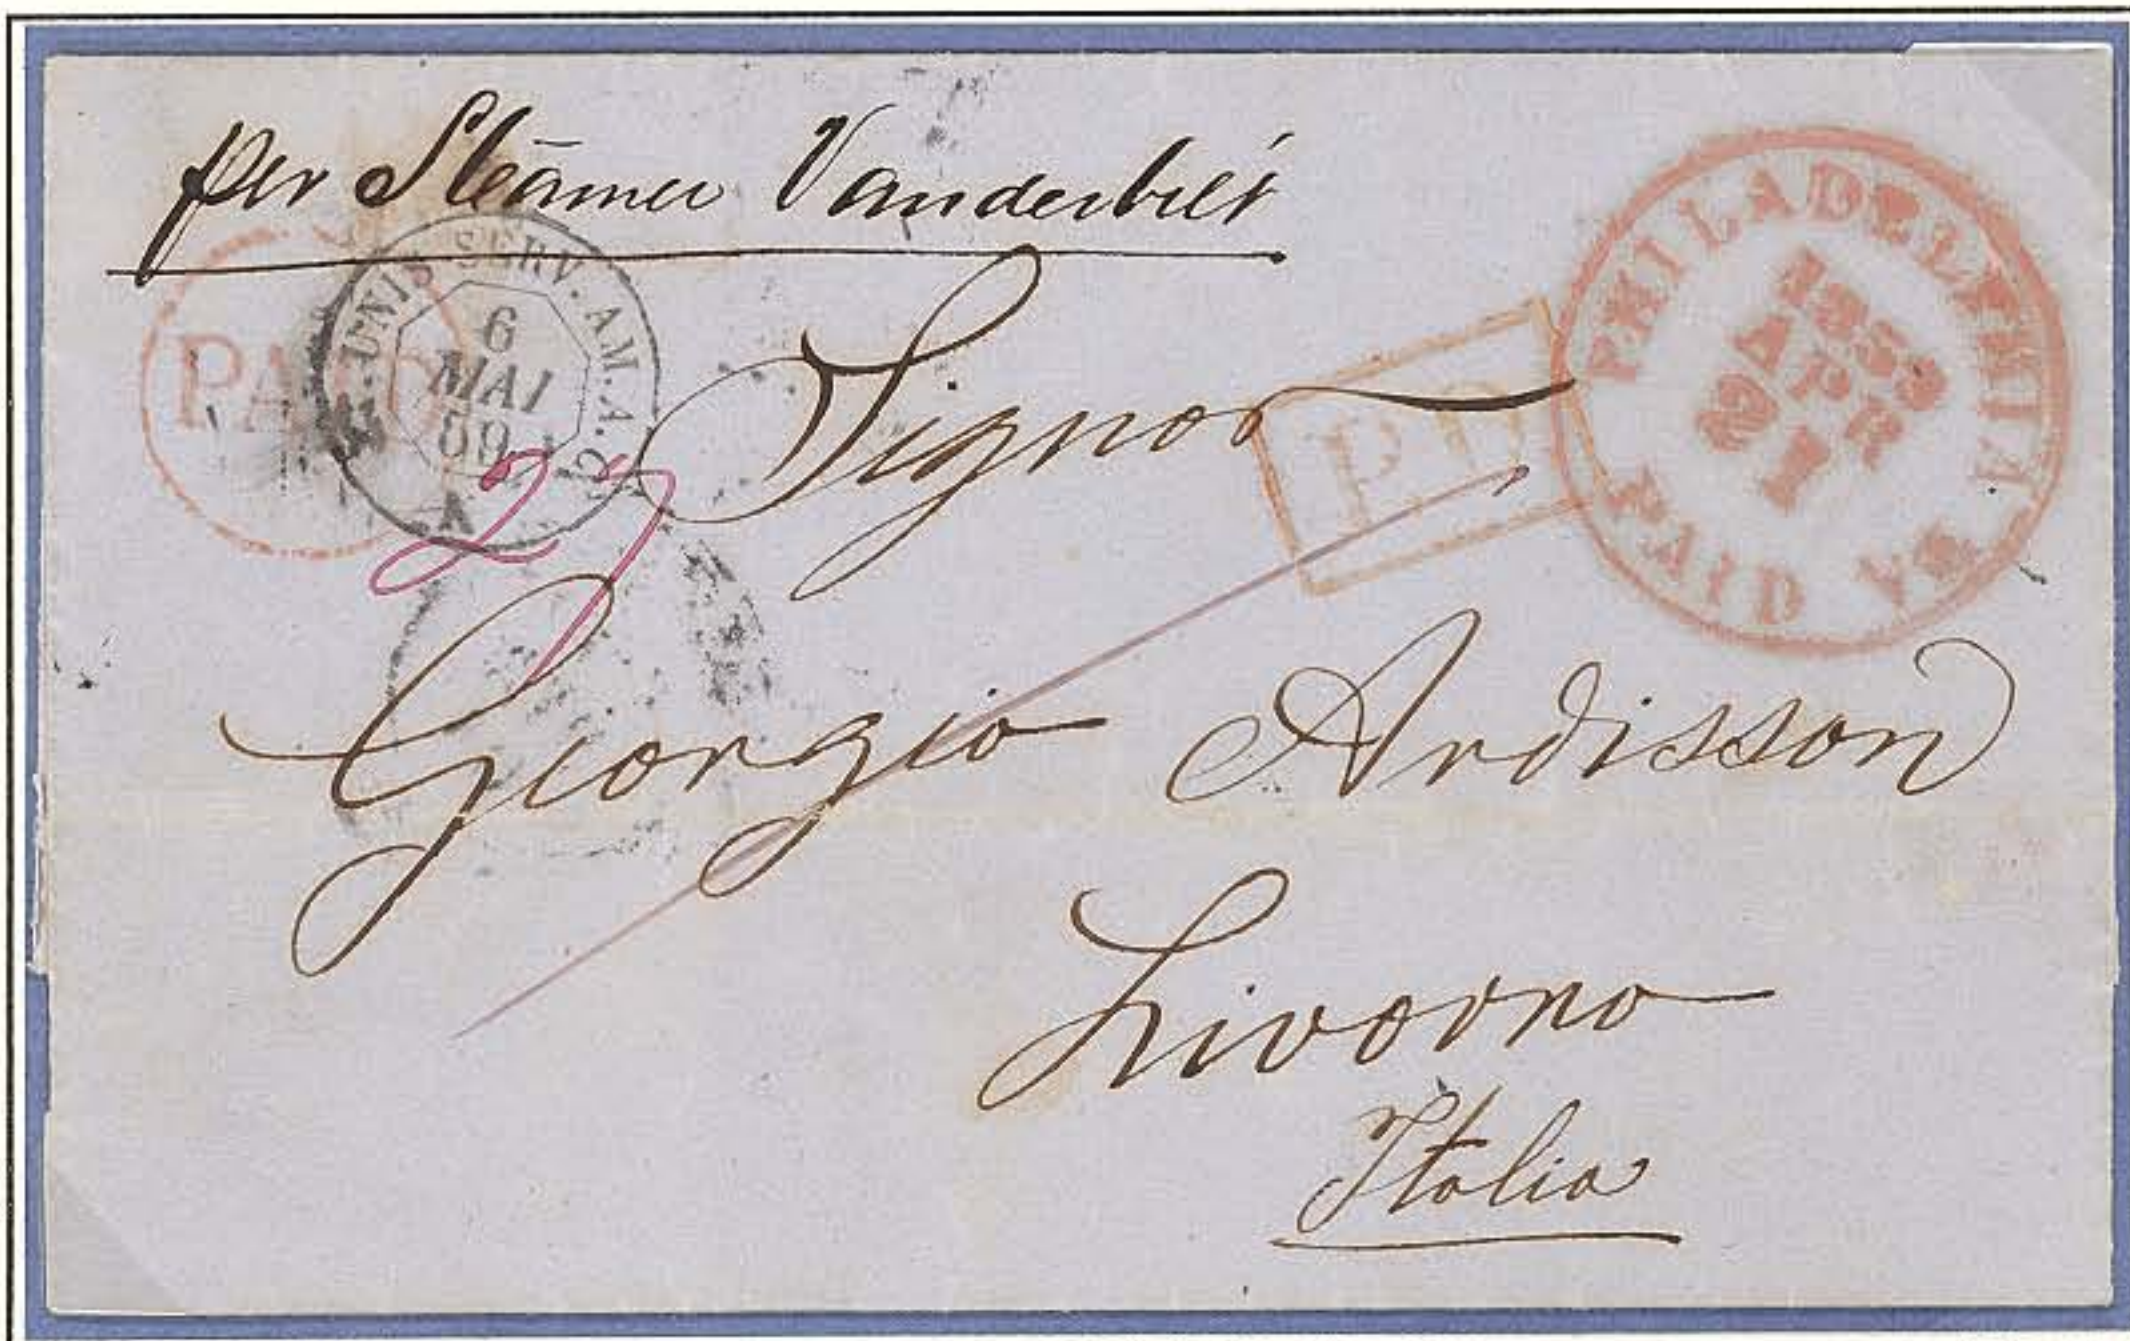 per Steamer Vanderbilt
PAID
UNIS SERV. AM. A. C.
6
MAI
59
A
27
Signor
P.D.
PHILADELPHIA
1859
APR
21
PAID
Giorgio Ardisson
Livorno
Italia